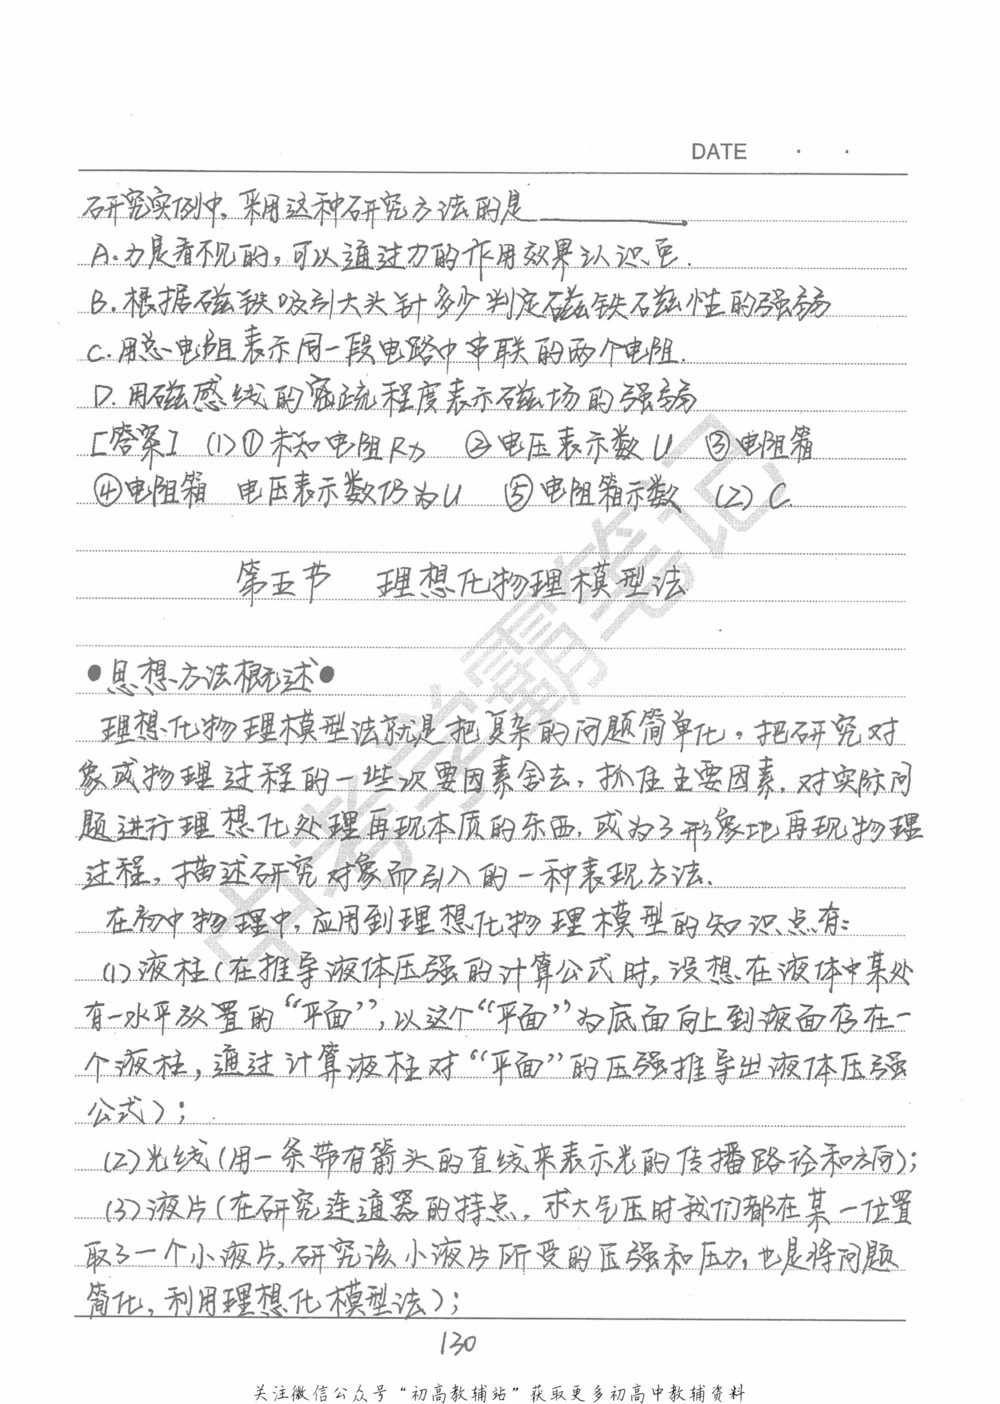 DATE · ·
研究实例中，采用这种研究方法的是________.
A.力是看不见的，可以通过力的作用效果认识它.
B.根据磁铁吸引大头针多少判定磁铁磁性的强弱
C.用总电阻表示同一段电路中串联的两个电阻.
D.用磁感线的密疏程度表示磁场的强弱
[答案] (1)①未知电阻Rx ②电压表示数U ③电阻箱
④电阻箱 电压表示数仍为U ⑤电阻箱示数 (2)C.
第五节 理想化物理模型法
●思想方法概述●
理想化物理模型法就是把复杂的问题简单化，把研究对
象或物理过程的一些次要因素舍去，抓住主要因素，对实际问
题进行理想化处理再现本质的东西，或为了形象地再现物理
过程，描述研究对象而引入的一种表现方法.
在初中物理中，应用到理想化物理模型的知识点有：
(1)液柱(在推导液体压强的计算公式时，设想在液体中某处
有一水平放置的“平面”，以这个“平面”为底面向上到液面存在一
个液柱，通过计算液柱对“平面”的压强推导出液体压强
公式)；
(2)光线(用一条带有箭头的直线来表示光的传播路径和方向)；
(3)液片(在研究连通器的特点，求大气压时我们都在某一位置
取了一个小液片，研究该小液片所受的压强和压力，也是将问题
简化，利用理想化模型法)；
130
关注微信公众号“初高教辅站”获取更多初高中教辅资料
中考学霸笔记